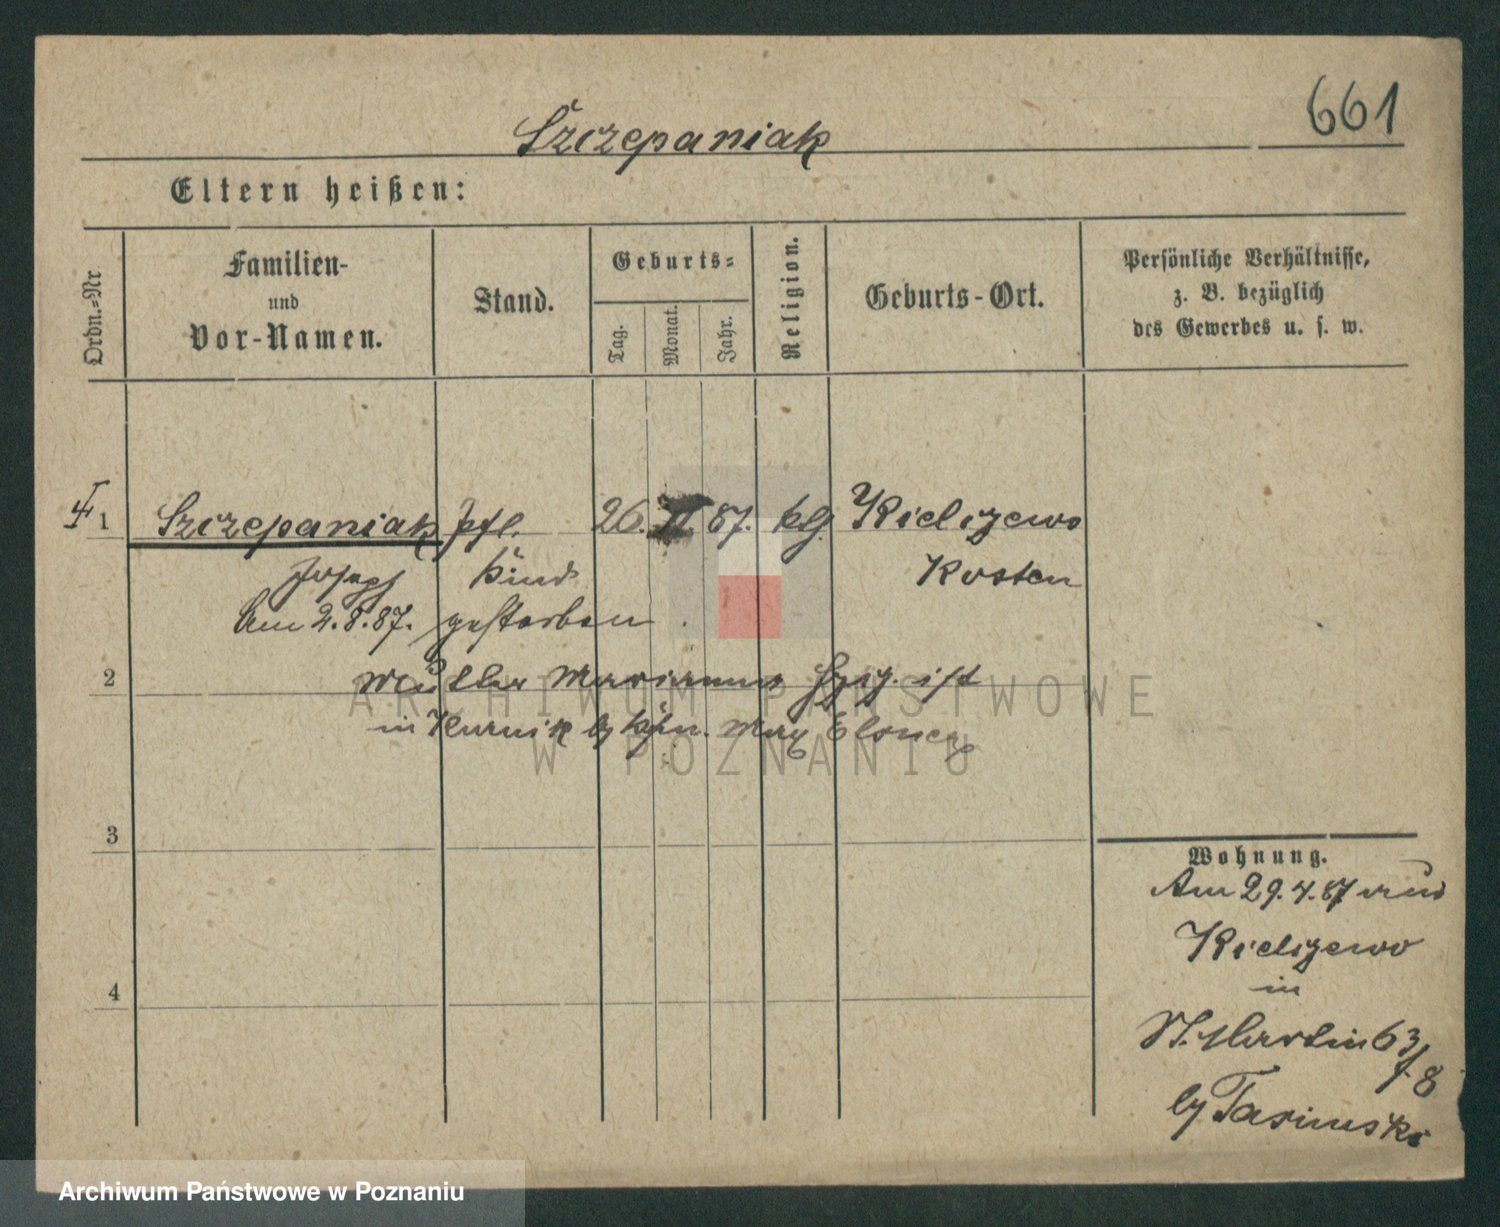 Szczepaniak
661
Eltern heißen:
Ordn.-Nr
Familien-
und
Vor-Namen.
Stand.
Geburts-
Tag.
Monat.
Jahr.
Religion.
Geburts-Ort.
Persönliche Verhältnisse,
z. B. bezüglich
des Gewerbes u. s. w.
1 Szczepaniak Pfl. 26. 87. ktl. Kielczewo
Joseph Kind Kosten
Am 2.8.87. gestorben
2 Mutter Marianna ist
in Kurnik by Max
3
4
Wohnung.
Am 29.4.87 aus
Kielczewo
in
St. Martin 63/8
by Tasinski
ARCHIWUM PAŃSTWOWE
W POZNANIU
Archiwum Państwowe w Poznaniu